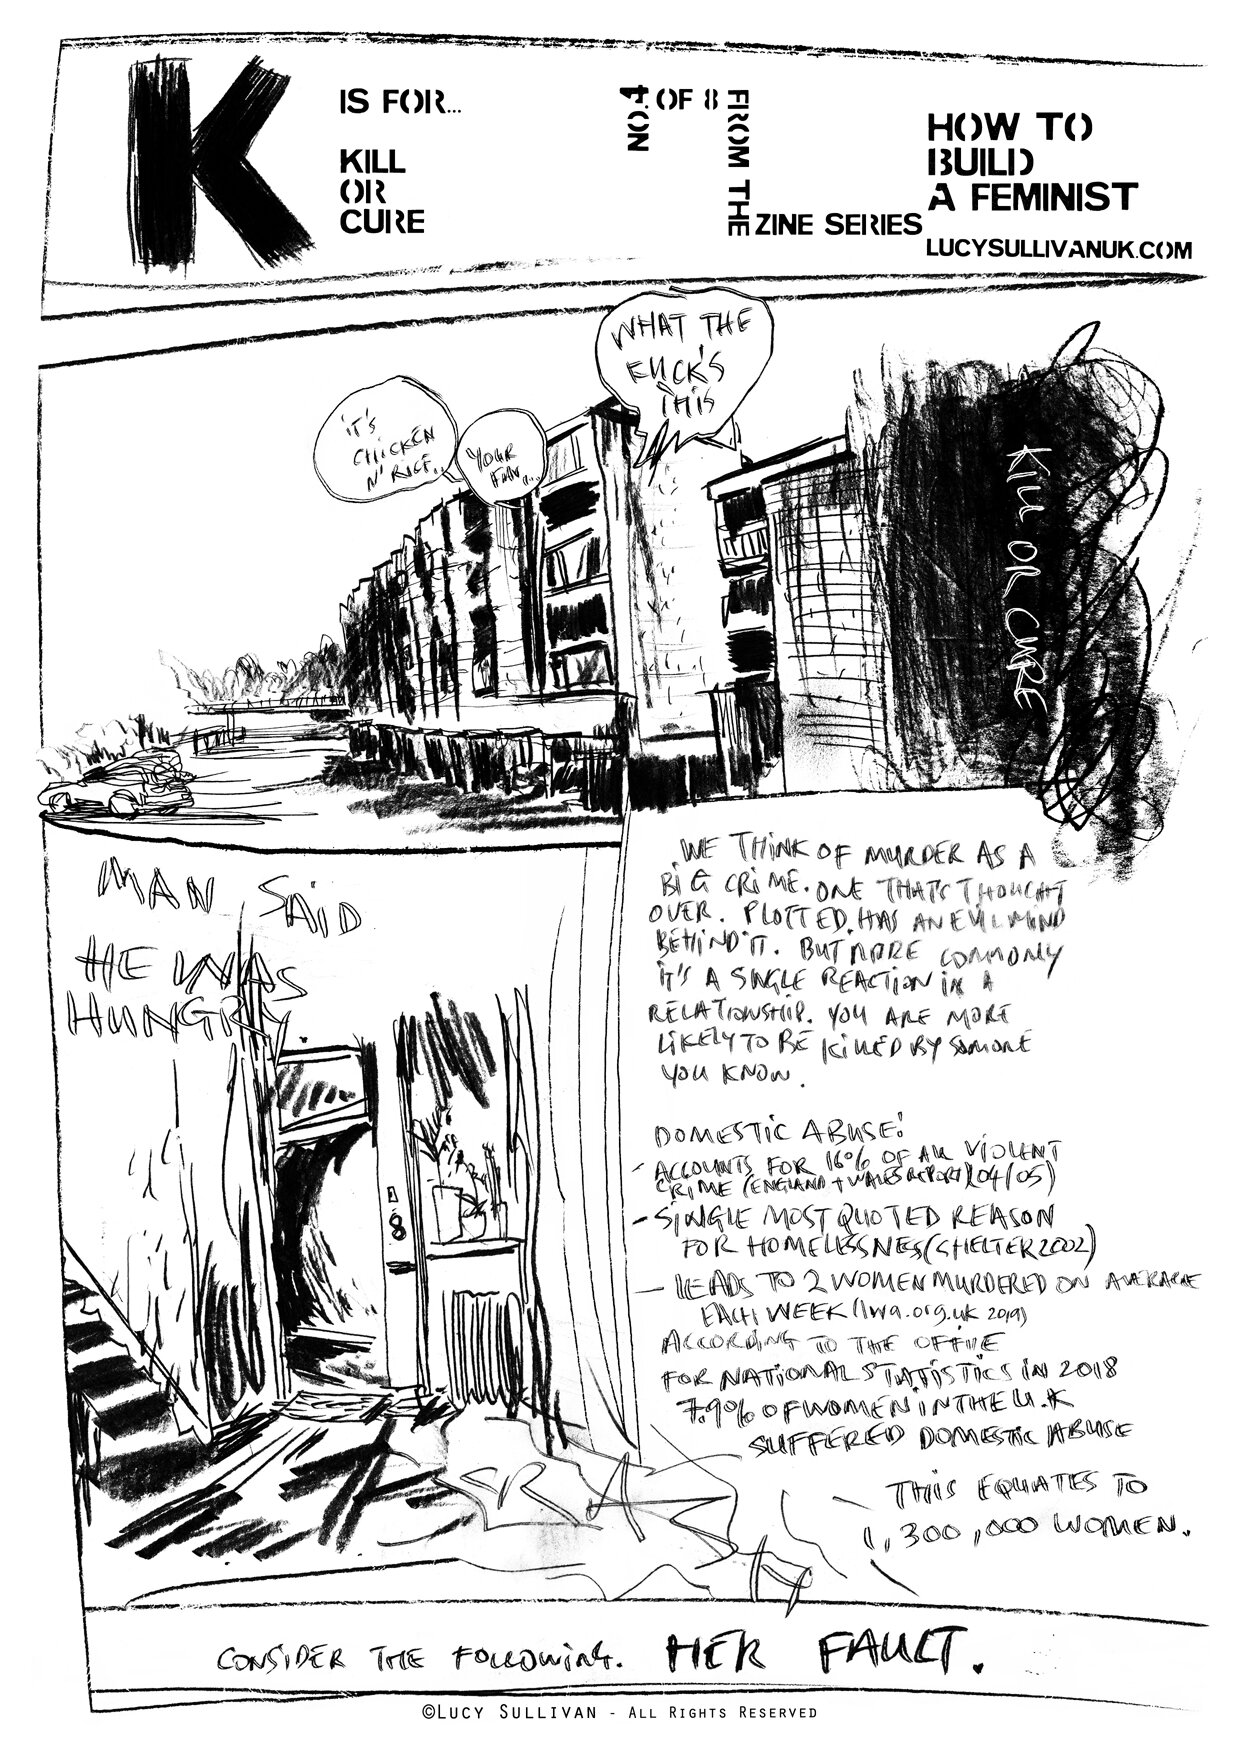 K
IS FOR...
KILL
OR
CURE
NO. 4 OF 8
FROM THE
ZINE SERIES
HOW TO
BUILD
A FEMINIST
LUCYSULLIVANUK.COM
WHAT THE
FUCK'S
THIS
IT'S
CHICKEN
N' RICE..
YOUR
FAV...
KILL OR CURE
MAN SAID
HE WAS
HUNGRY.
8
WE THINK OF MURDER AS A
BIG CRIME. ONE THATS THOUGHT
OVER. PLOTTED, HAS AN EVIL MIND
BEHIND IT. BUT MORE COMMONLY
IT'S A SINGLE REACTION IN A
RELATIONSHIP. YOU ARE MORE
LIKELY TO BE KILLED BY SOMEONE
YOU KNOW.
DOMESTIC ABUSE:
- ACCOUNTS FOR 16% OF ALL VIOLENT
CRIME (ENGLAND + WALES REPORT) (04/05)
- SINGLE MOST QUOTED REASON
FOR HOMELESSNESS (SHELTER 2002)
- LEADS TO 2 WOMEN MURDERED ON AVERAGE
EACH WEEK (lwa.org.uk 2019)
ACCORDING TO THE OFFICE
FOR NATIONAL STATISTICS IN 2018
7.9% OF WOMEN IN THE U.K
SUFFERED DOMESTIC ABUSE
THIS EQUATES TO
1,300,000 WOMEN.
CRASH
CONSIDER THE FOLLOWING. HER FAULT.
©LUCY SULLIVAN - ALL RIGHTS RESERVED